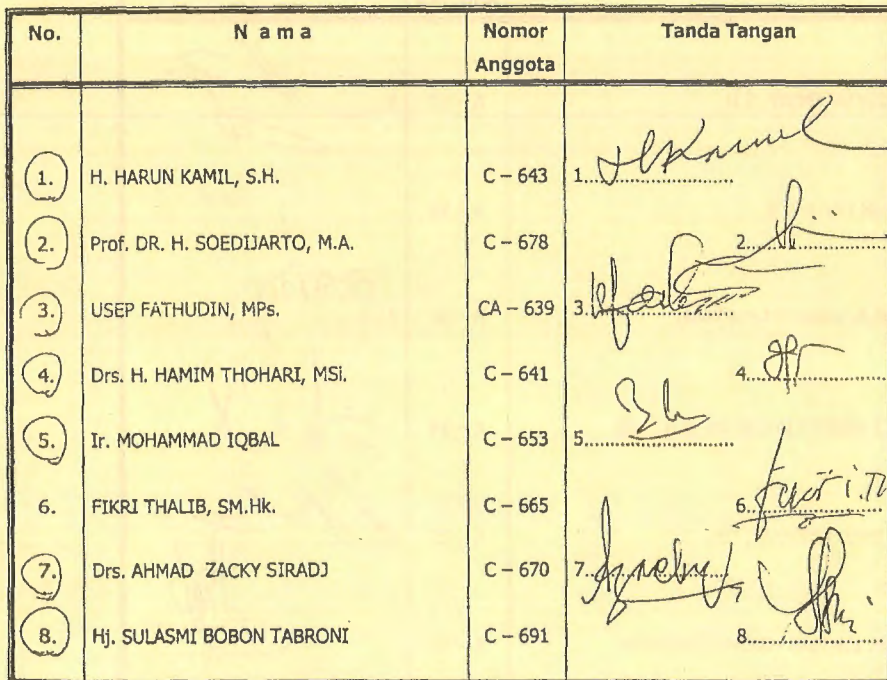 No. N a m a Nomor Anggota Tanda Tangan
1. H. HARUN KAMIL, S.H. C – 643 1. HKamil
2. Prof. DR. H. SOEDIJARTO, M.A. C – 678 2.
3. USEP FATHUDIN, MPs. CA – 639 3.
4. Drs. H. HAMIM THOHARI, MSi. C – 641 4.
5. Ir. MOHAMMAD IQBAL C – 653 5.
6. FIKRI THALIB, SM.Hk. C – 665 6.
7. Drs. AHMAD ZACKY SIRADJ C – 670 7.
8. Hj. SULASMI BOBON TABRONI C – 691 8.